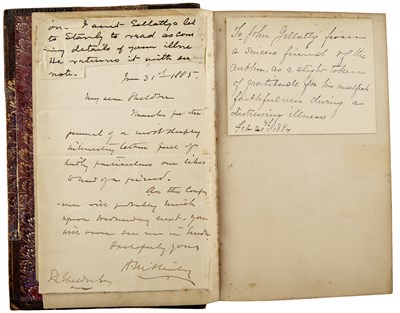 on. I sent Gellatly's let
to Stanly to read as con
ing details of your illne
He returns it with en
note.
Jan 31st 1885.
My dear Sheldon
Thanks for the
perusal of a most deeply
interesting letter full of
kindly particulars one likes
to read of a friend.
As the
will probably
upon Wednesday next. you
will soon see me in
Faithfully yours
H M Stanley
To John Gellatly from
a sincere friend of the
Author, as a slight token
of gratitude for his unselfish
faithfulness during a
distressing illness